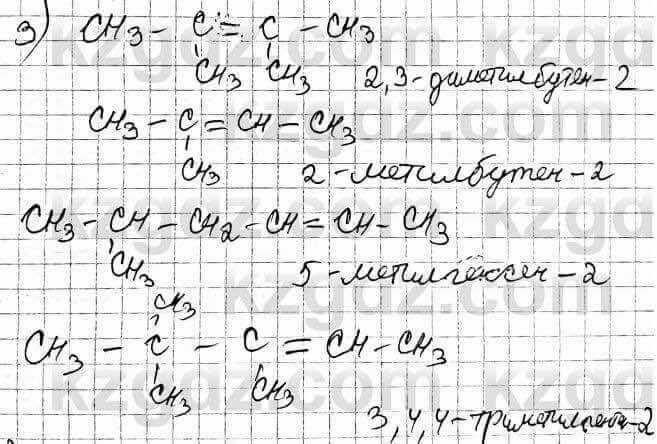 3) CH3 - C = C - CH3
CH3 CH3 2,3-диметилбутен-2
CH3 - C = CH - CH3
CH3 2-метилбутен-2
CH3 - CH - CH2 - CH = CH - CH3
CH3 5-метилгексен-2
CH3
CH3 - C - C = CH - CH3
CH3 CH3
3,4,4-триметилпентен-2
kzgdz.com